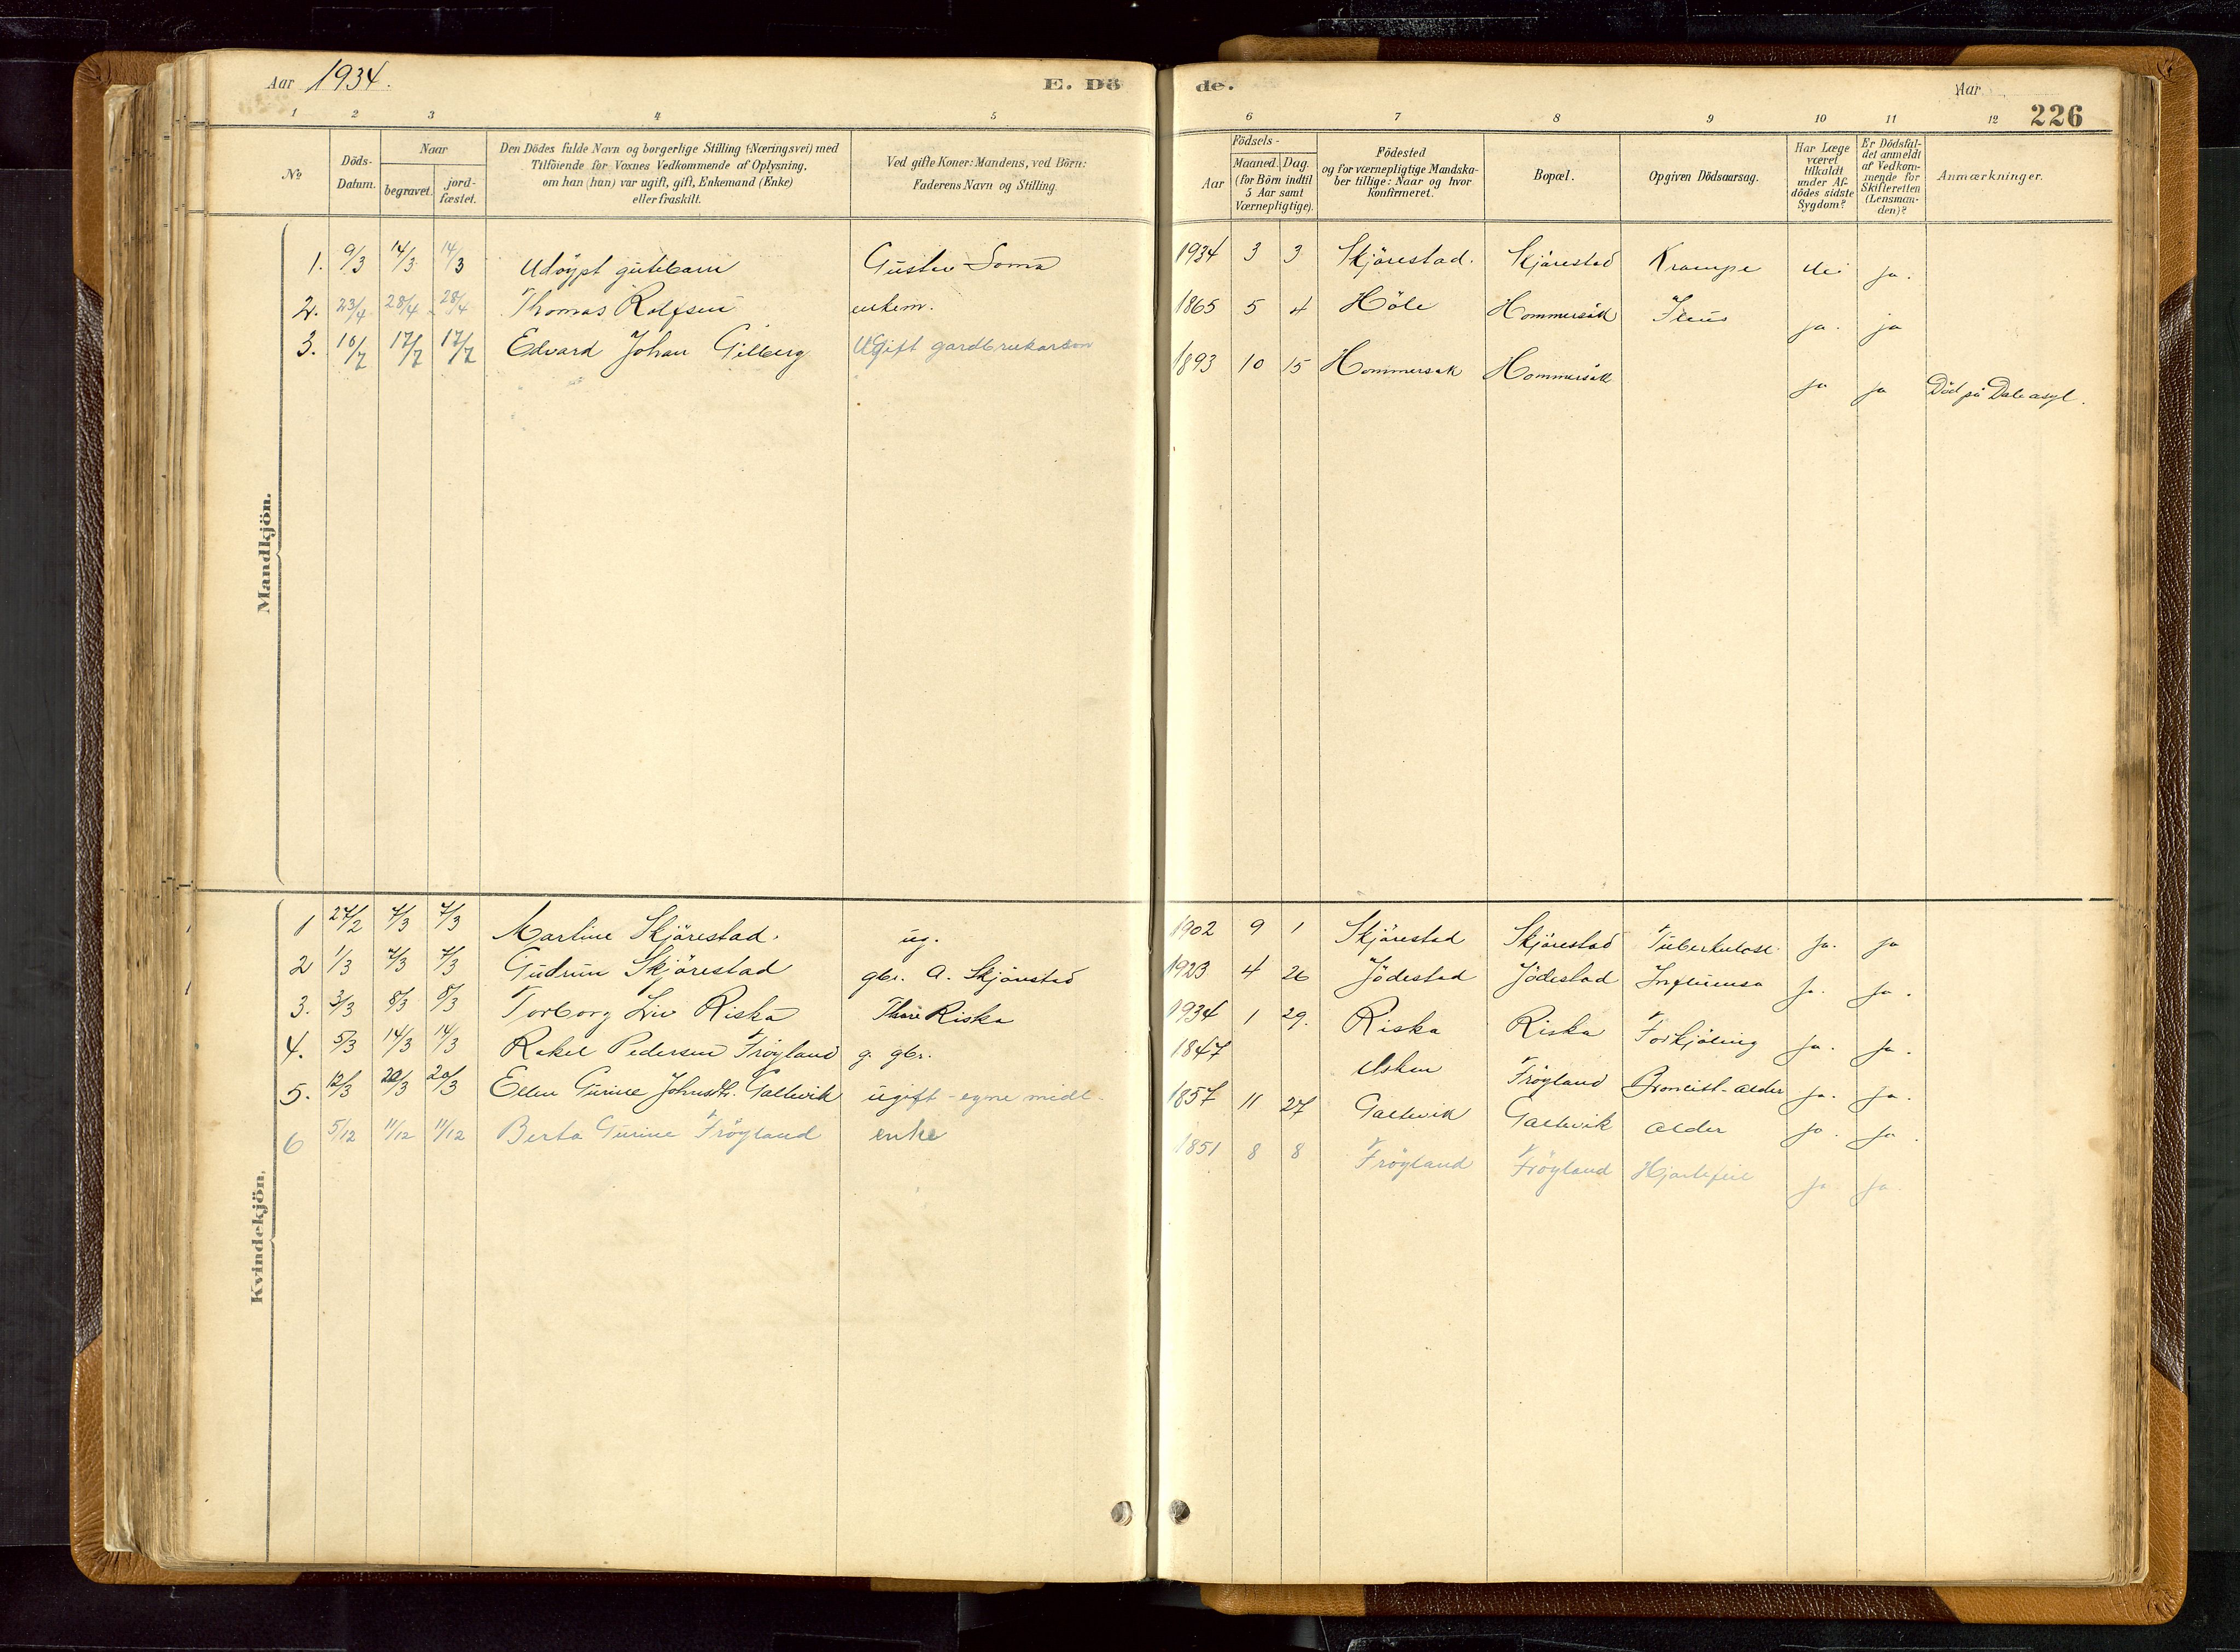 Aar 1934.
E. Dö
de.
Aar
226
1 2 3 4 5
6 7 8 9 10 11 12
No
Döds-
Datum.
Naar
begravet.
jord-
fæstet.
Den Dödes fulde Navn og borgerlige Stilling (Næringsvei) med
Tilföiende for Voxnes Vedkommende af Oplysning,
om han (hun) var ugift, gift, Enkemand (Enke)
eller fraskilt.
Ved gifte Koner: Mandens, ved Börn:
Faderens Navn og Stilling.
Födsels-
Aar
Maaned. Dag.
(for Börn indtil
5 Aar samt
Værnepligtige).
Födested
og for værnepligtige Mandska-
ber tillige: Naar og hvor
konfirmeret.
Bopæl.
Opgiven Dödsaarsag.
Har Læge
været
tilkaldt
under Af-
dödes sidste
Sygdom?
Er Dödsfal-
det anmeldt
af Vedkom-
mende for
Skifteretten
(Lensman-
den)?
Anmærkninger.
Mandkjön.
1. 9/3 14/3 14/3 Udøypt gutebarn Gustav Soma 1934 3 3 Skjörestad. Skjörestad Krampe Nei ja.
2. 23/4 28/4 28/4 Thomas Rolfsen enkem. 1865 5 4 Höle Hommersåk Ileus ja. ja
3. 10/7 17/7 17/7 Edvard Johan Gilberg Ugift gardbrukarson 1893 10 15 Hommersåk Hommersåk ja ja Död på Dale asyl.
Kvindekjön.
1 27/2 7/3 7/3 Martine Skjörestad. ug. 1902 9 1 Skjörestad Skjörestad Tuberkulose ja. ja
2 1/3 7/3 7/3 Gudrun Skjörestad gbr. A. Skjörestad 1923 4 26 Jödestad Jödestad Influensa ja. ja.
3. 3/3 8/3 8/3 Torborg Liv Riska Riska 1934 1 29. Riska Riska Forkjöling ja. ja.
4. 5/3 14/3 14/3 Rakel Pedersen Fröyland g. gbr. 1847 Fröyland alder ja. ja.
5. 12/3 20/3 20/3 Ellen Gurine Johnsdtr. Galtevik ugift - egne midl. 1857 11 27 Galtevik Galtevik alder ja. ja.
6 5/12 11/12 11/12 Berta Gurine Fröyland enke 1851 8 8 Fröyland Fröyland Hjartefeil ja ja